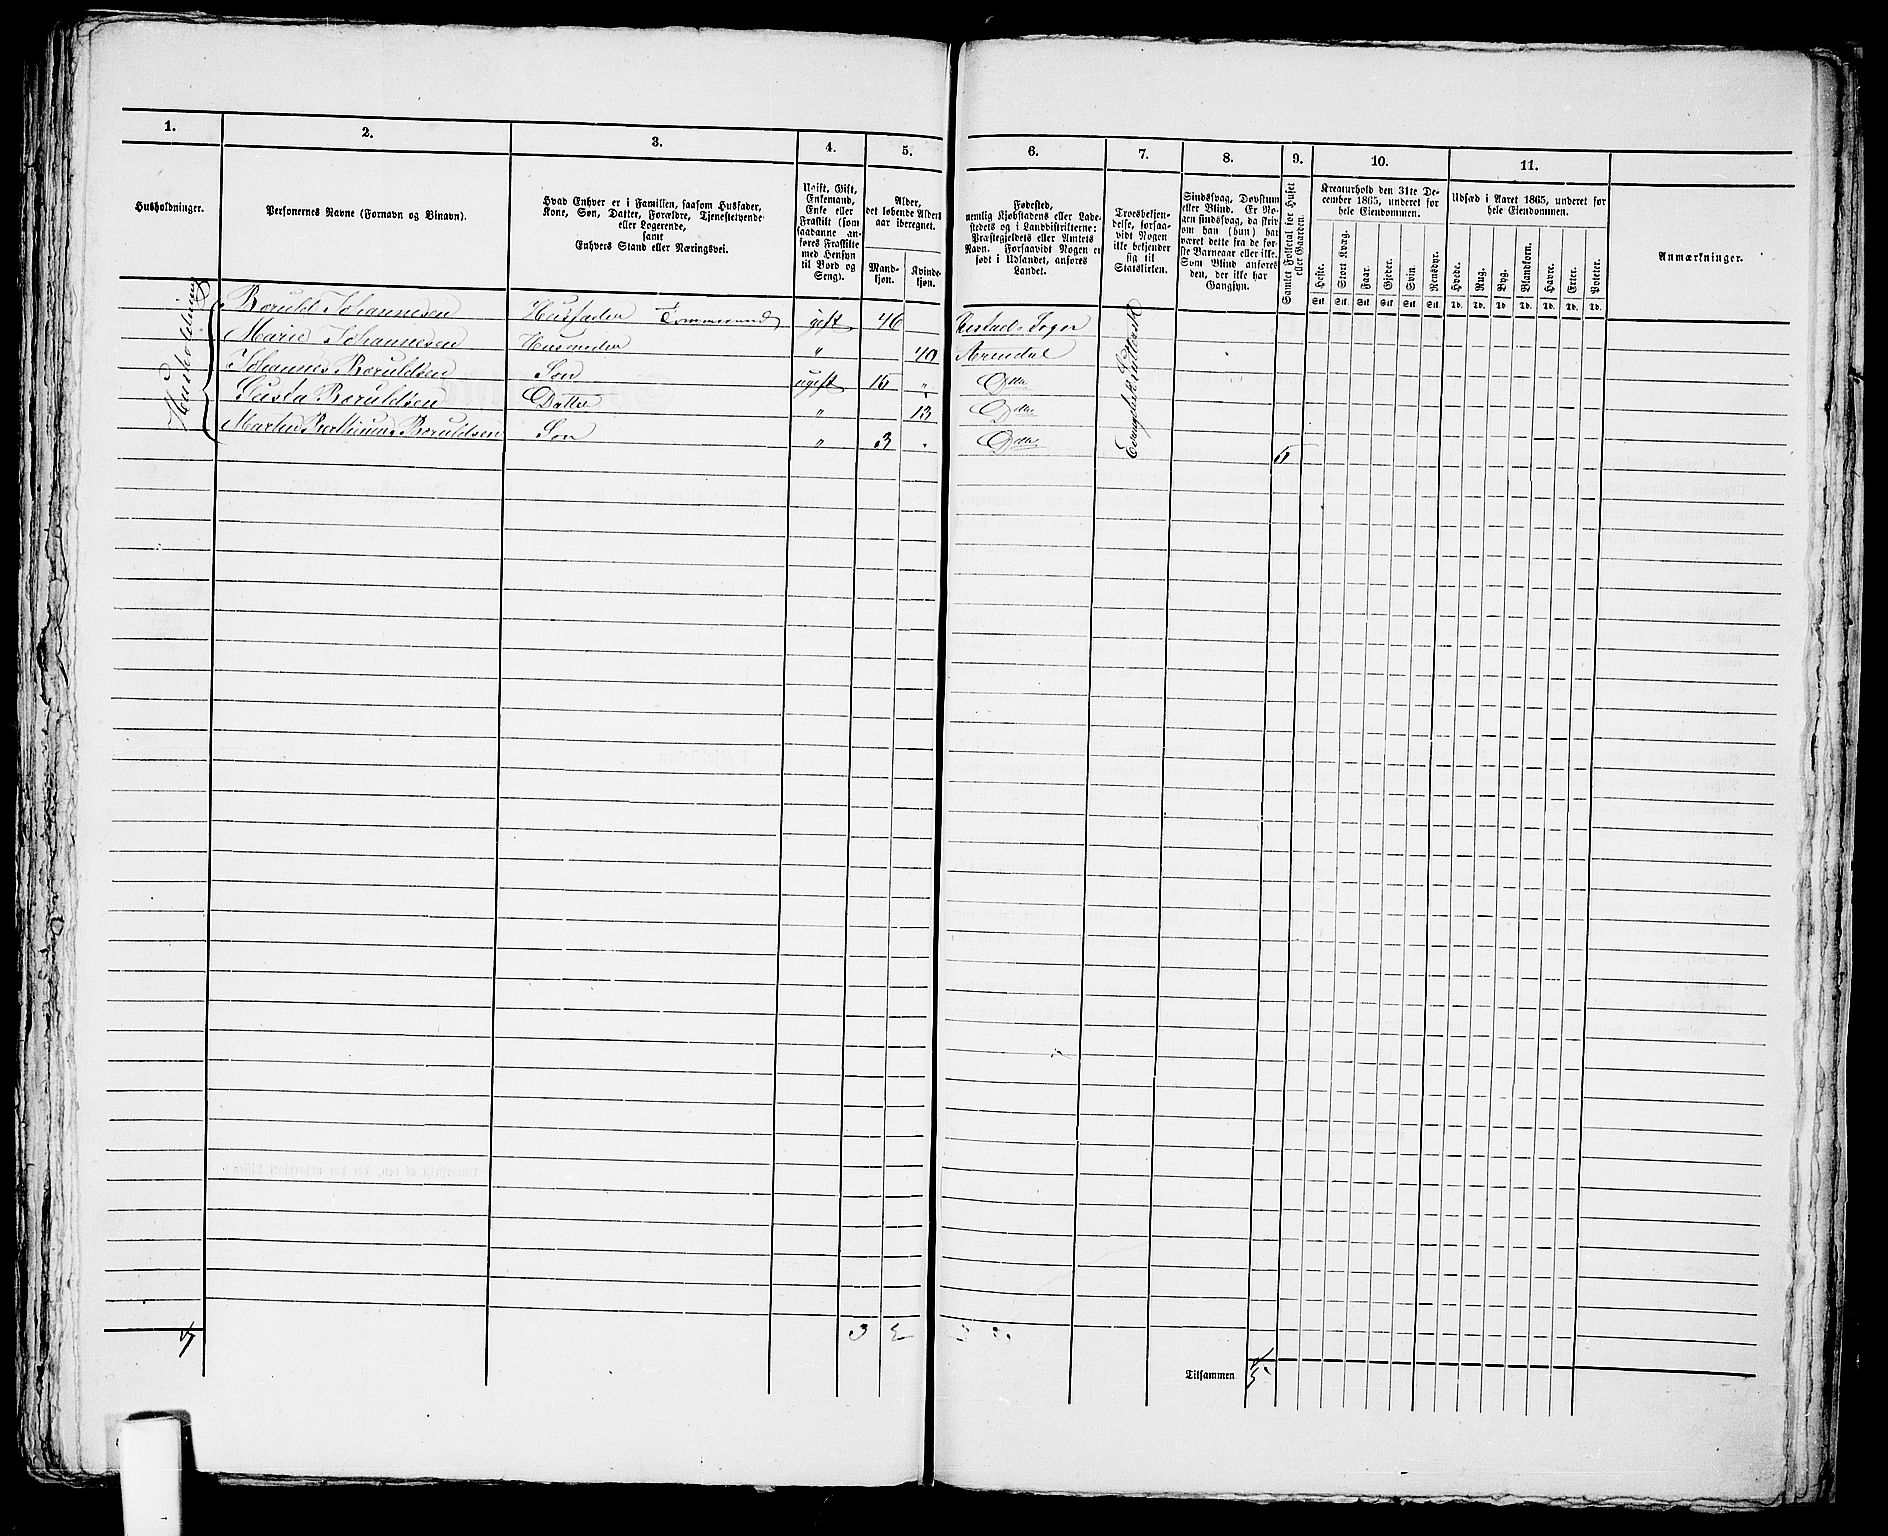 1.
2.
3.
4.
5.
6.
7.
8.
9.
10.
11.
Husholdninger.
Personernes Navne (Fornavn og Binavn).
Hvad Enhver er i Familien, saasom Husfader,
Kone, Søn, Datter, Forældre, Tjenestetyende
eller Logerende,
samt
Enhvers Stand eller Næringsvei.
Ugift, Gift,
Enkemand,
Enke eller
Fraskilt (som
saadanne an-
føres Fraskilte
med Hensyn
til Bord og
Seng).
Alder,
det løbende Alders-
aar iberegnet.
Mand-
kjøn.
Kvinde-
kjøn.
Fødested,
nemlig Kjøbstadens eller Lade-
stedets og i Landdistrikterne:
Præstegjeldets eller Amtets
Navn. Forsaavidt Nogen er
født i Udlandet, anføres
Landet.
Troesbekjen-
delse, forsaa-
vidt Nogen
ikke bekjender
sig til
Statskirken.
Sindssvag, Døvstum
eller Blind. Er No-
gen sindssvag, da skriv
om han (hun) har
været dette fra de før-
ste Barneaar eller ikke.
Som Blind anføres
den, der ikke har
Gangsyn.
Samlet Folketal for Huset
eller Gaarden.
Kreaturhold den 31te De-
cember 1865, underet før
hele Eiendommen.
Heste.
Stort Kvæg.
Faar.
Gjeder.
Svin.
Rensdyr.
Stk. Stk. Stk. Stk. Stk. Stk.
Udsæd i Aaret 1865, underet før
hele Eiendommen.
Hvede.
Rug.
Byg.
Blandkorn.
Havre.
Erter.
Poteter.
Td. Td. Td. Td. Td. Td. Td.
Anmærkninger.
Husholdning
Boruld Johannesen Husfader Tømmermand gift 46 Sogn
Marie Johannesen Husmoder " 40 Arendal
Johannes Boruldsen Søn ugift 16 " Do
Gusta Boruldsen Datter " 13 Do
Martin Boruldsen Søn " 3 " Do
Evangelisk Luthersk
1 3 2
Tilsammen 5